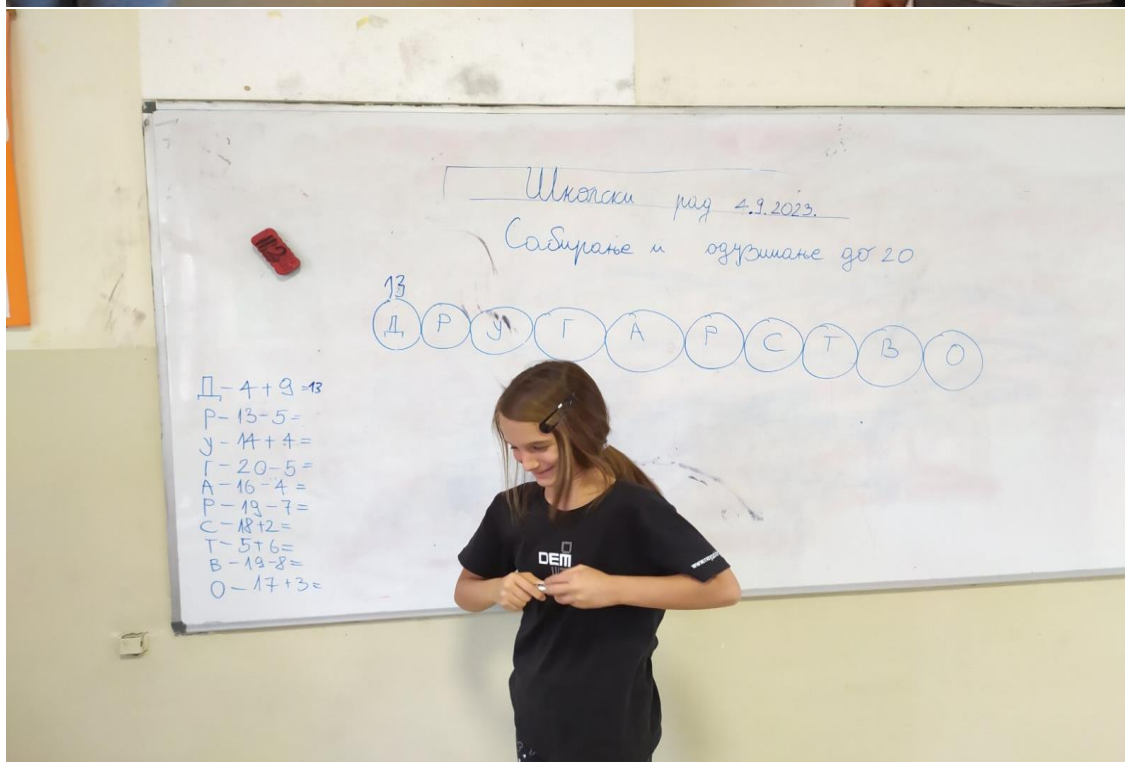 Школски рад 4.9.2023.
Сабирање и одузимање до 20
13
Д Р У Г А Р С Т В О
Д - 4 + 9 = 13
Р - 13 - 5 =
У - 14 + 4 =
Г - 20 - 5 =
А - 16 - 4 =
Р - 19 - 7 =
С - 18 + 2 =
Т - 5 + 6 =
В - 19 - 8 =
О - 17 + 3 =
DEM